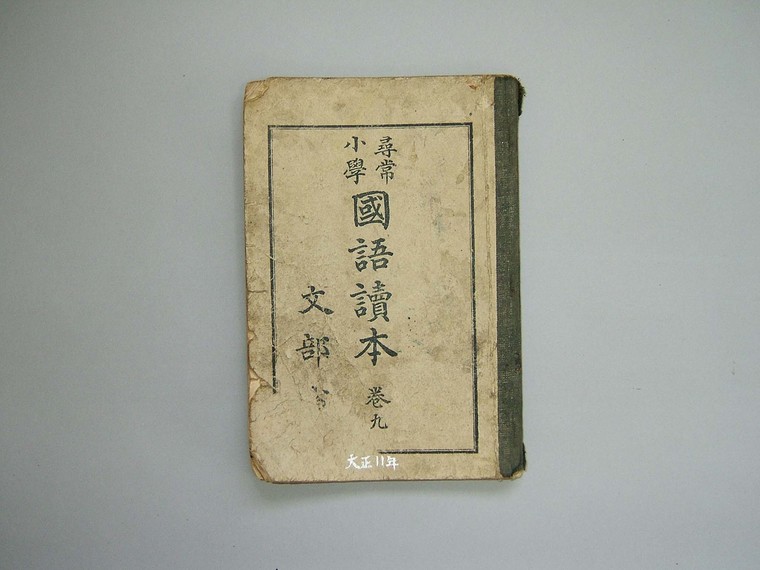 尋常
小學
國語讀本 卷九
文部
大正11年